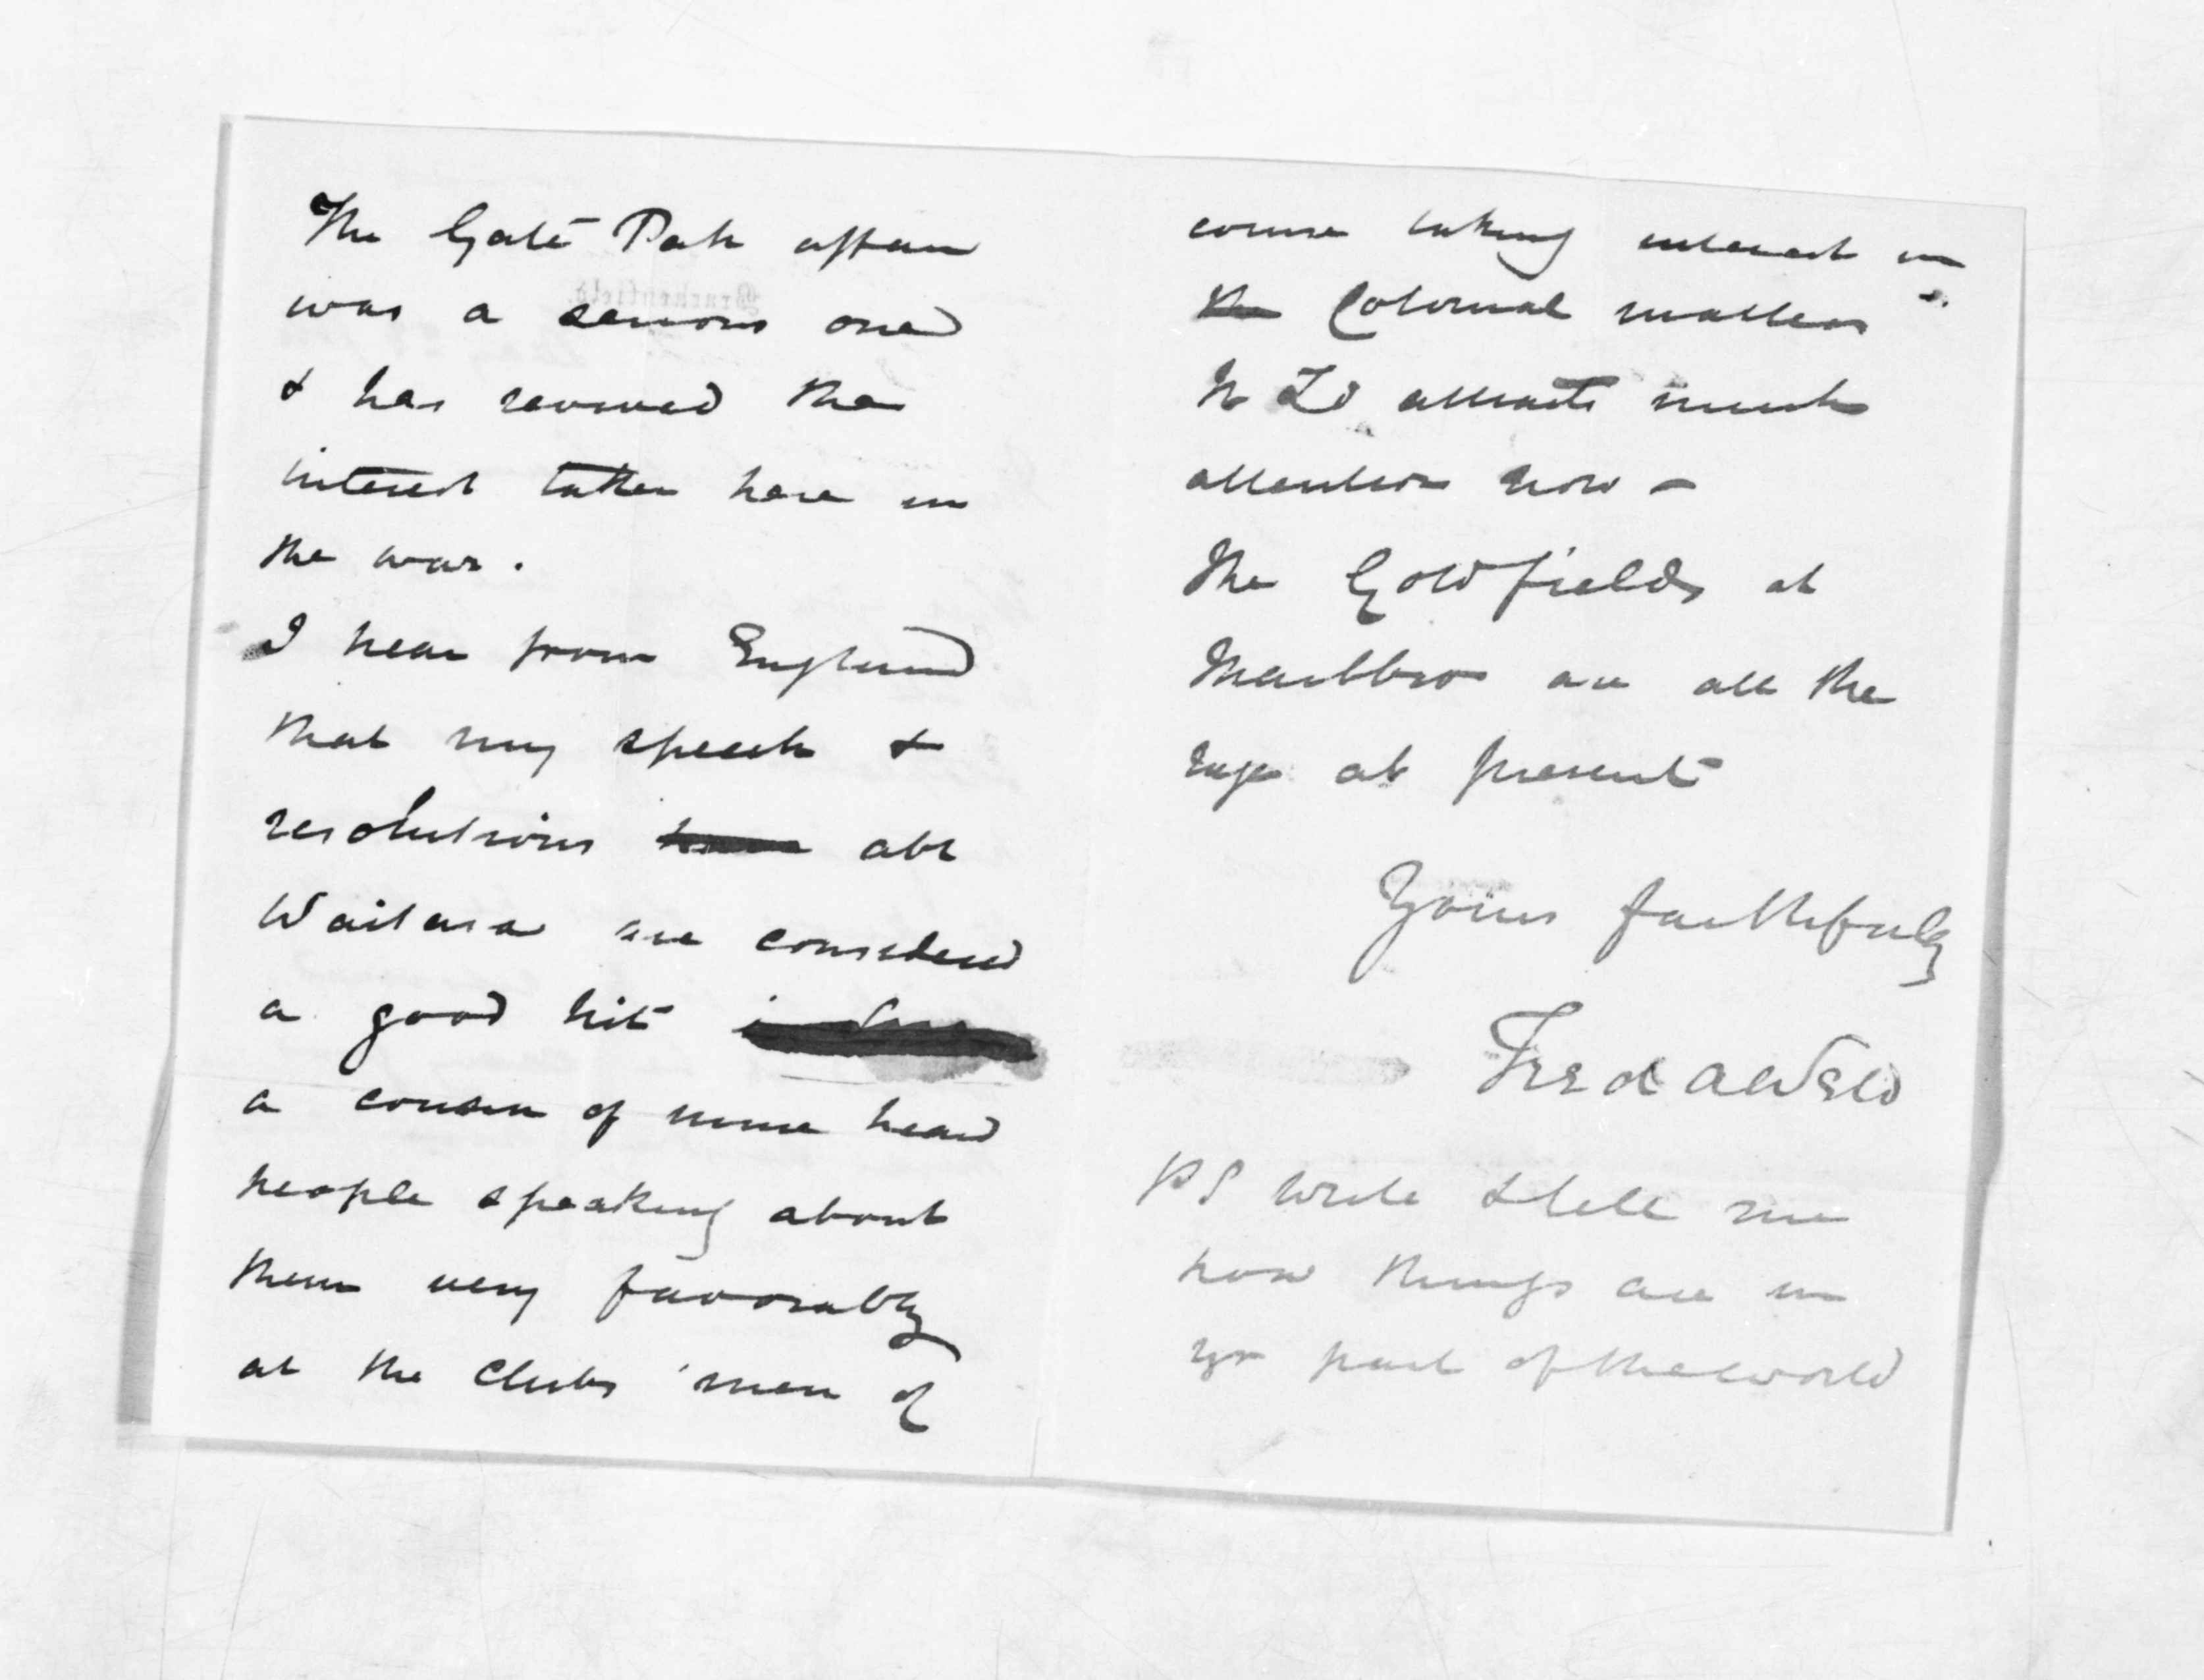 The Gate Pah affair
was a serious one
& has revived the
interest taken here in
the war.
I hear from England
that my speech &
resolutions abt
Waitara are considered
a good hit
a cousin of mine heard
people speaking about
them very favorably
at the clubs men of
course taking interest in
the Colonial matters
N Zd attracts much
attention now -
The Goldfields at
Marlbro are all the
rage at present
Yours faithfully
Fred A Weld
PS Write & tell me
how things are in
yr part of the world
Brackenfield.